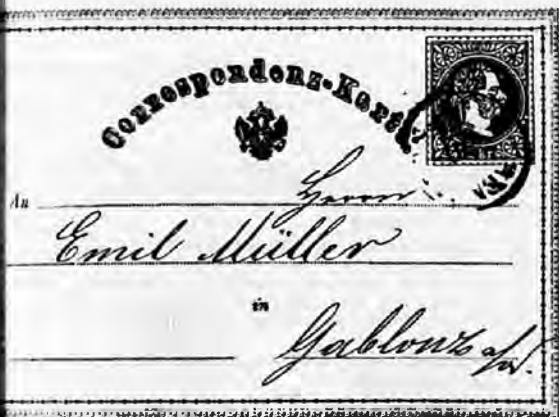 Correspondenz-Karte
An Herrn
Emil Müller
in
Gablonz a/N.